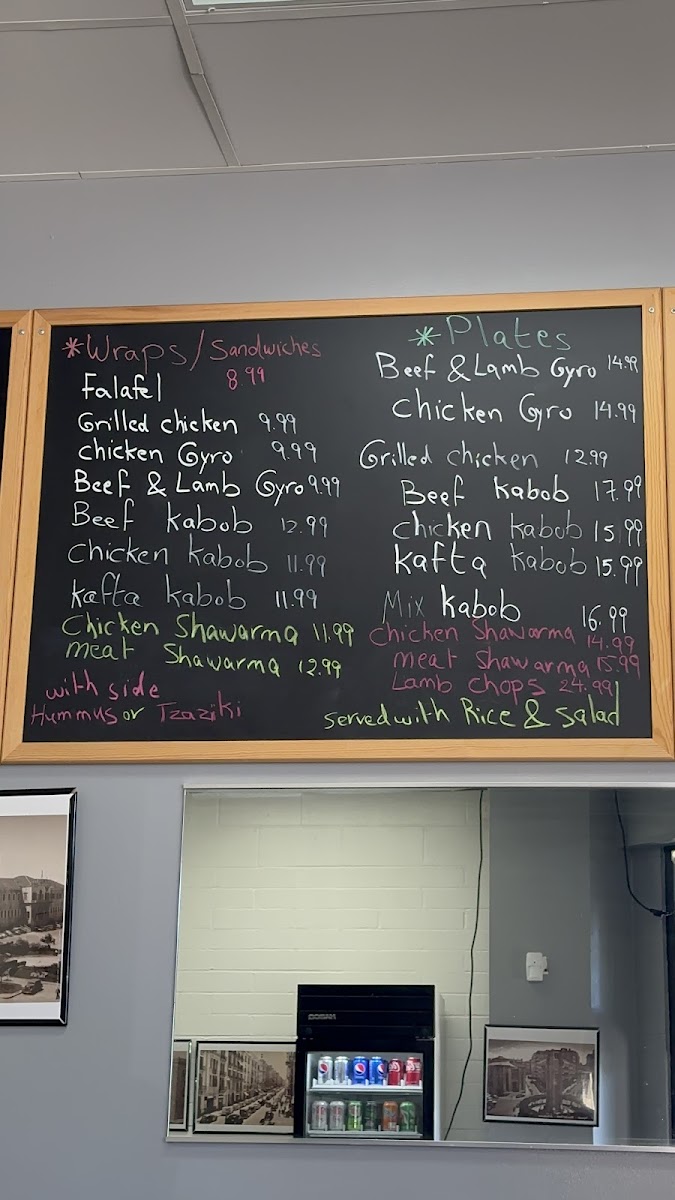 *Wraps/Sandwiches
Falafel 8.99
Grilled chicken 9.99
chicken Gyro 9.99
Beef & Lamb Gyro 9.99
Beef kabob 12.99
chicken kabob 11.99
kafta kabob 11.99
Chicken Shawarma 11.99
meat Shawarma 12.99
with side
Hummus or Tzaziki
*Plates
Beef & Lamb Gyro 14.99
chicken Gyro 14.99
Grilled chicken 12.99
Beef kabob 17.99
chicken kabob 15.99
kafta kabob 15.99
Mix kabob 16.99
chicken Shawarma 14.99
meat shawarma 15.99
Lamb chops 24.99
served with Rice & salad